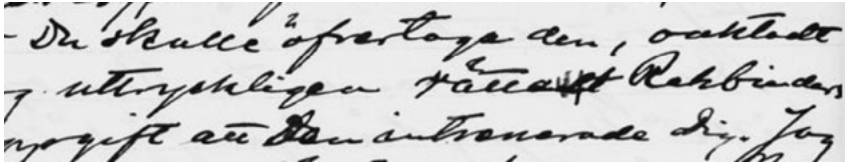 - Du skulle öfvertaga den, oaktadt
g uttryckligen rättadt Rehbinders
uppgift att den intresserade dig. Jag